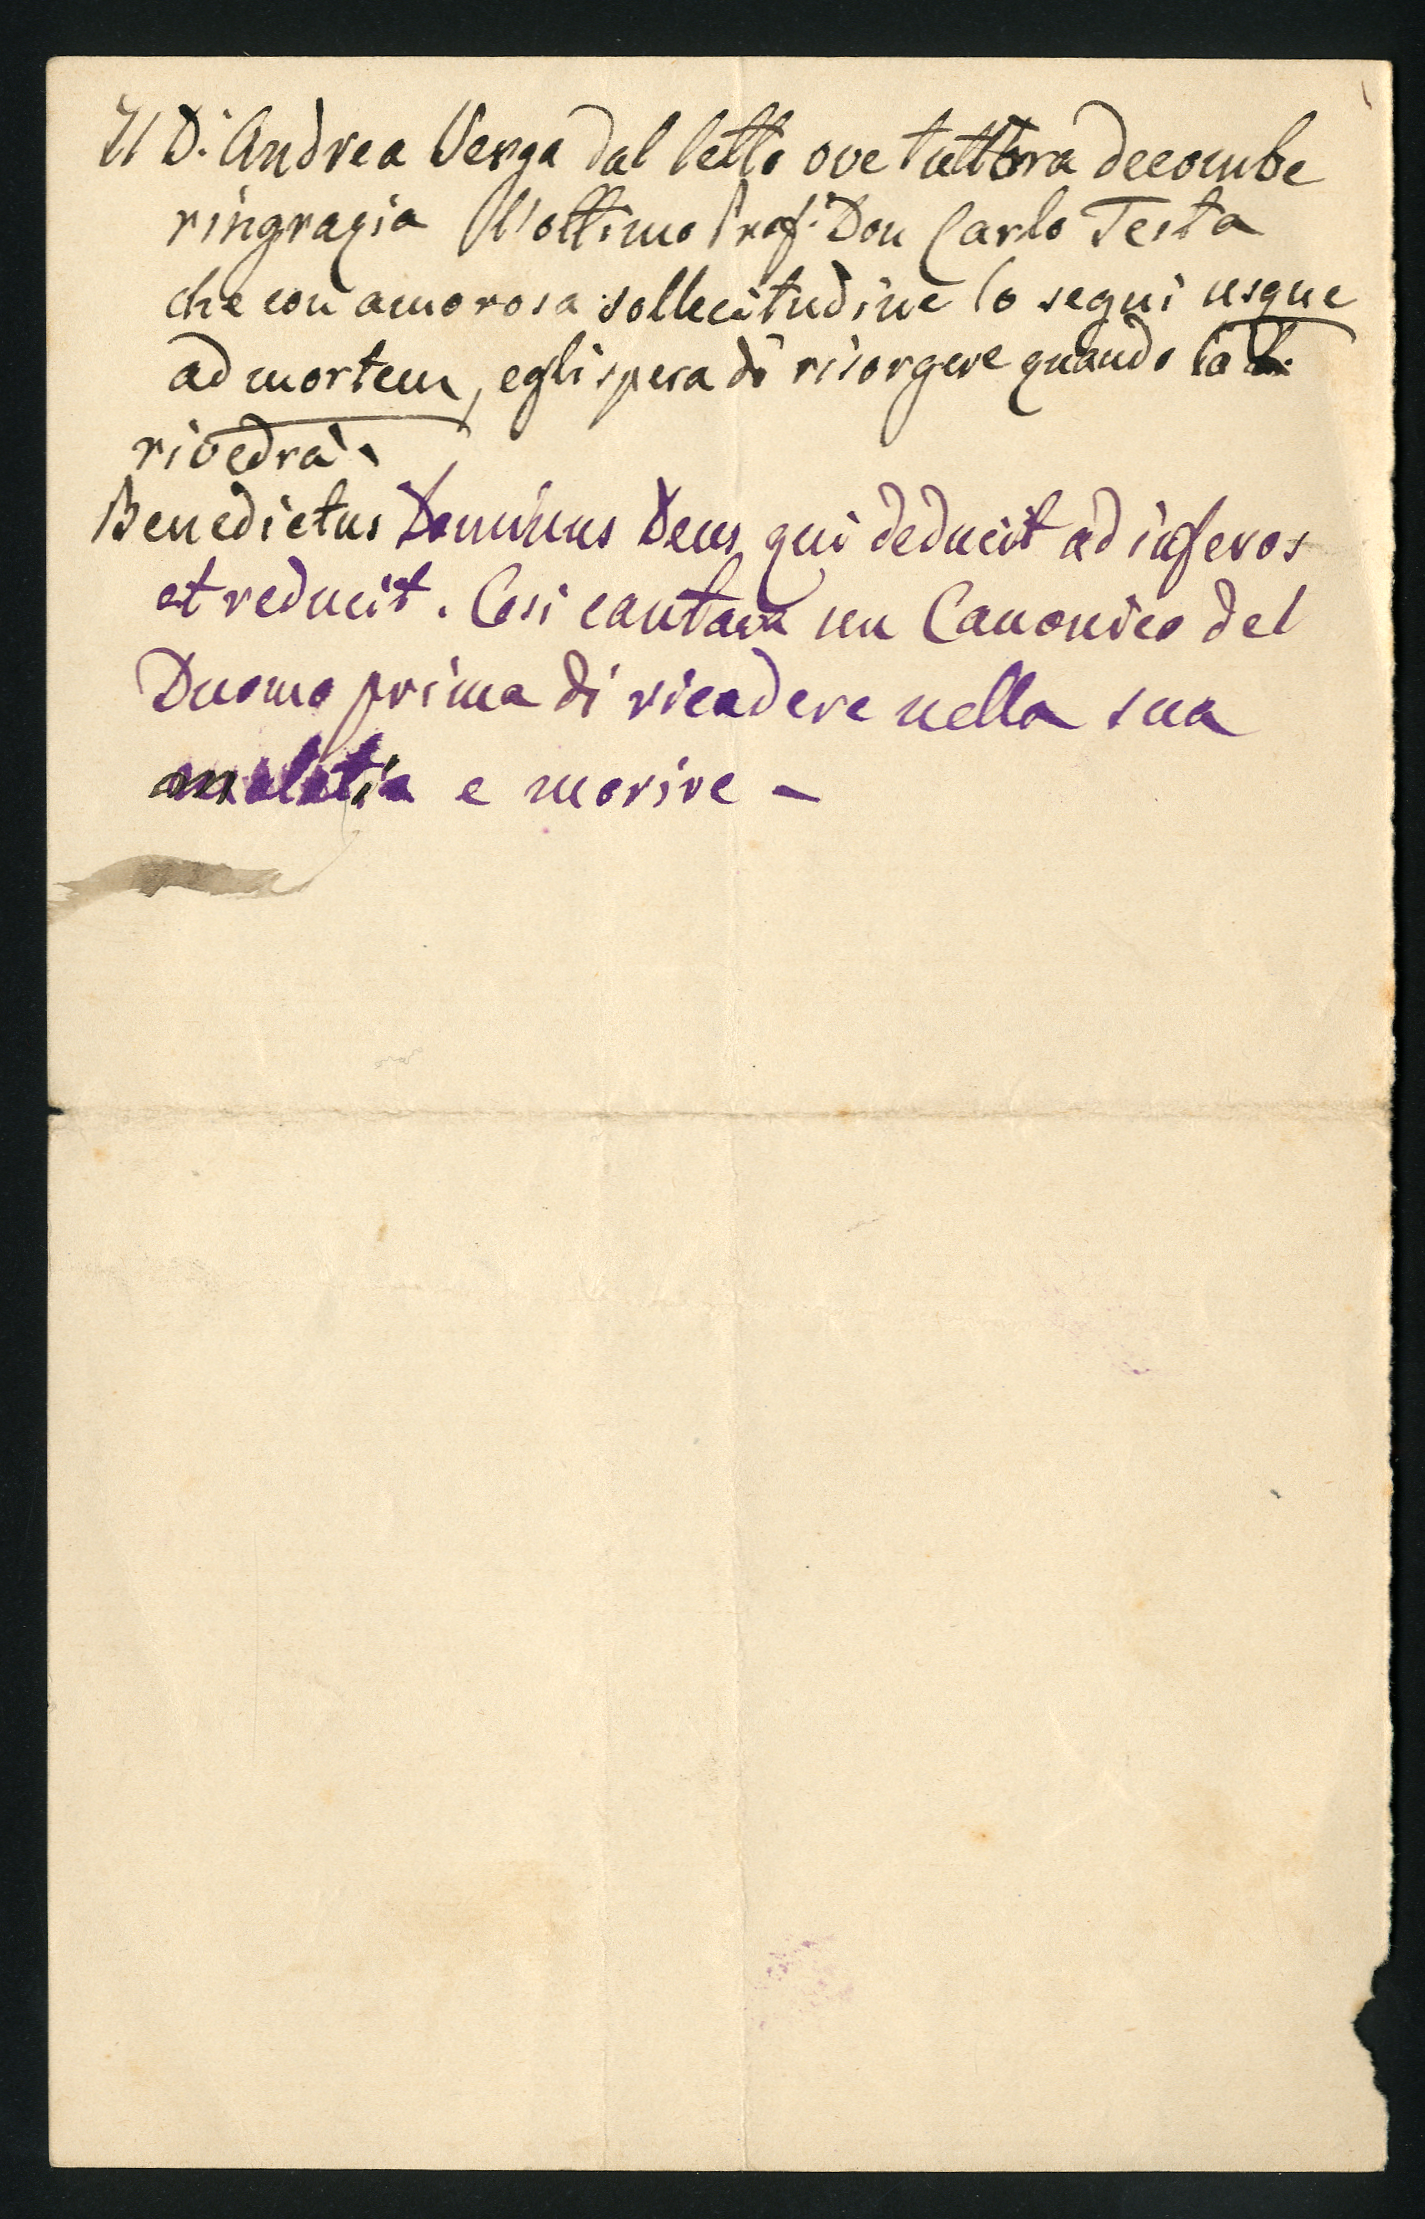 Il D.r Andrea Verga dal letto ove tuttora decombe
ringrazia l'ottimo Prof. Don Carlo Testa
che con amorosa sollecitudine lo seguì usque
ad mortem, egli spera di risorgere quando lo
rivedrà.
Benedictus Dominus Deus qui deducit ad inferos
et reducit. Così cantava un Canonico del
Duomo prima di ricadere nella sua
malatia e morire –